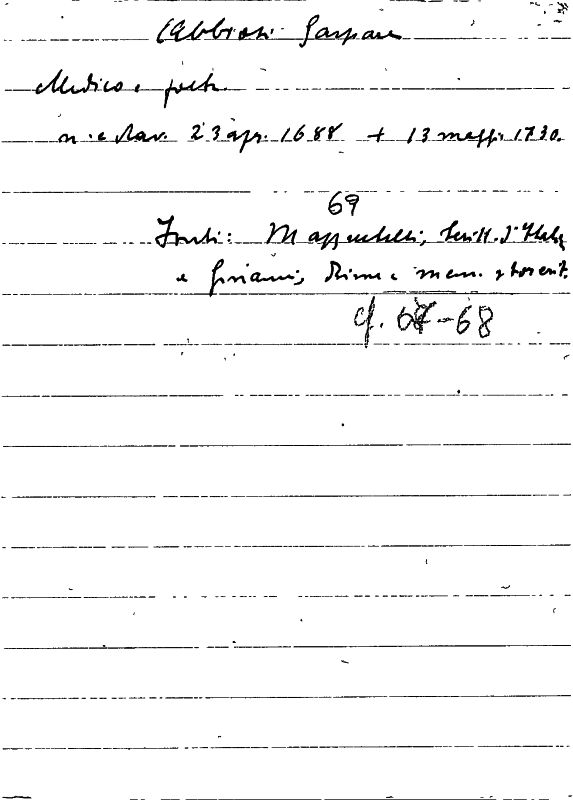 Abbiosi Gaspare
Medico e poeta
n. a Rav. 23 apr. 1688 + 13 magg. 1730.
69
Fonti: Mazzuchelli, Scritt. d'Italia
e Ginanni, Rime e mem. storich.
cf. 67-68